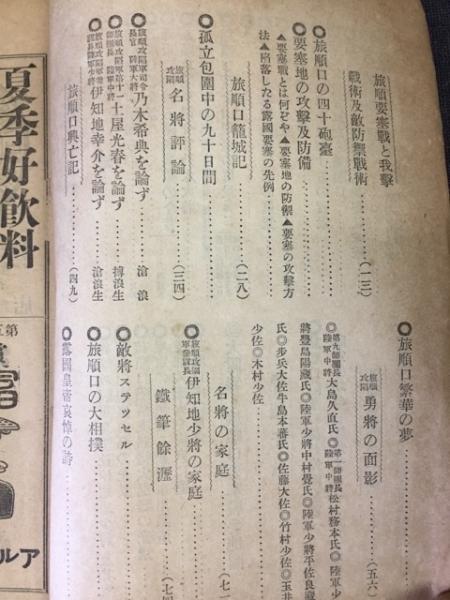 旅順要塞戰と我攻擊
戰術及敵防禦戰術…………(一三)
◎旅順口の四十砲臺…………
◎要塞地の攻擊及防備…………
▲要塞戰とは何ぞや▲要塞地の防禦▲要塞の攻擊方
法▲陷落したる露國要塞の先例
旅順口籠城記…………(二八)
◎孤立包圍中の九十日間…………
旅順攻圍 名將評論…………(三四)
◎旅順攻圍軍司令長官陸軍大將 乃木希典を論ず………滄浪
◎ 土屋光春を論ず………搏浪生
◎ 陸軍少將 伊知地幸介を論ず………滄浪生
旅順口興亡記…………(四九)
◎旅順口繁華の夢…………
旅順攻圍 勇將の面影…………(五六)
◎第九師團長陸軍中將 大島久直氏◎第一師團長陸軍中將 松村務本氏◎陸軍少
將豐島陽藏氏◎陸軍少將中村覺氏◎陸軍少將平佐良藏
氏◎步兵大佐牛島本蕃氏◎佐藤大佐◎竹村少佐◎玉井
少佐◎木村少佐
名將の家庭…………(七
◎ 伊知地少將の家庭…………
鐵筆餘瀝…………(七四
◎敵將ステッセル…………
◎旅順口の大相撲…………
◎露國皇帝哀悼の詩…………
夏季好飮料
第五
アル